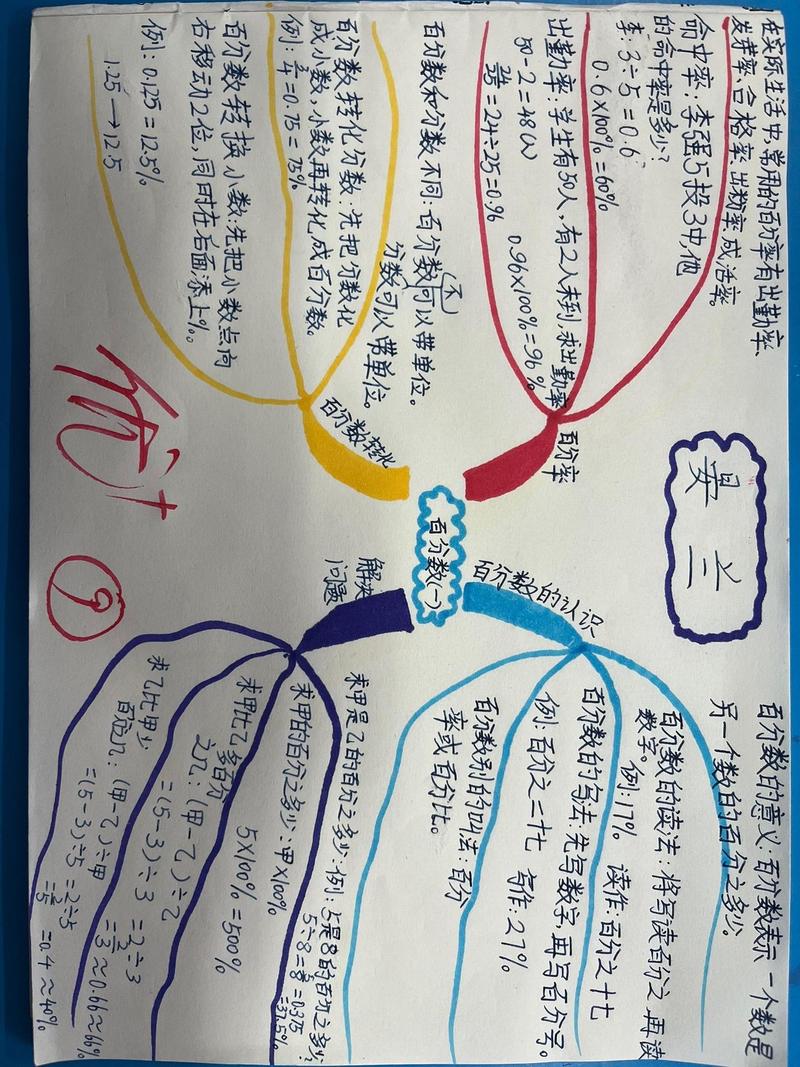 昙兰
百分数(一)
百分率
在实际生活中,常用的百分率有出勤率、
发芽率、合格率、出勤率、成活率。
命中率:李强5投3中,他
的命中率是多少?
李:3÷5=0.6
0.6×100%=60%
出勤率:学生有50人,有2人未到,求出勤率
50-2=48(人)
48/50=24÷25=0.96
0.96×100%=96%
百分数转化
百分数和分数不同:百分数(不)可以带单位。
分数可以带单位。
百分数转化分数:先把分数化
成小数,小数再转化成百分数。
例:3/4=0.75=75%
百分数转换小数:先把小数点向
右移动2位,同时在后面添上%。
例:0.125=12.5%
1.25→12.5
百分数的认识
百分数的意义:百分数表示一个数是
另一个数的百分之多少。
百分数的读法:将写读百分之,再读
数字。
例:17% 读作:百分之十七
百分数的写法:先写数字,再写百分号。
例:百分之二十七 写作:27%
百分数别的叫法:百分
率或百分比。
解决
问题
求甲是乙的百分之多少:例:5是8的百分之多少?
5÷8=5/8=0.375
=37.5%
求甲的百分之多少:甲×100%
5×100%=500%
求甲比乙多百分
之几:(甲-乙)÷乙
=(5-3)÷3
=2÷3
=2/3≈0.66≈66%
求乙比甲少
百分之几:(甲-乙)÷甲
=(5-3)÷5
=2÷5
=2/5
=0.4≈40%
优+